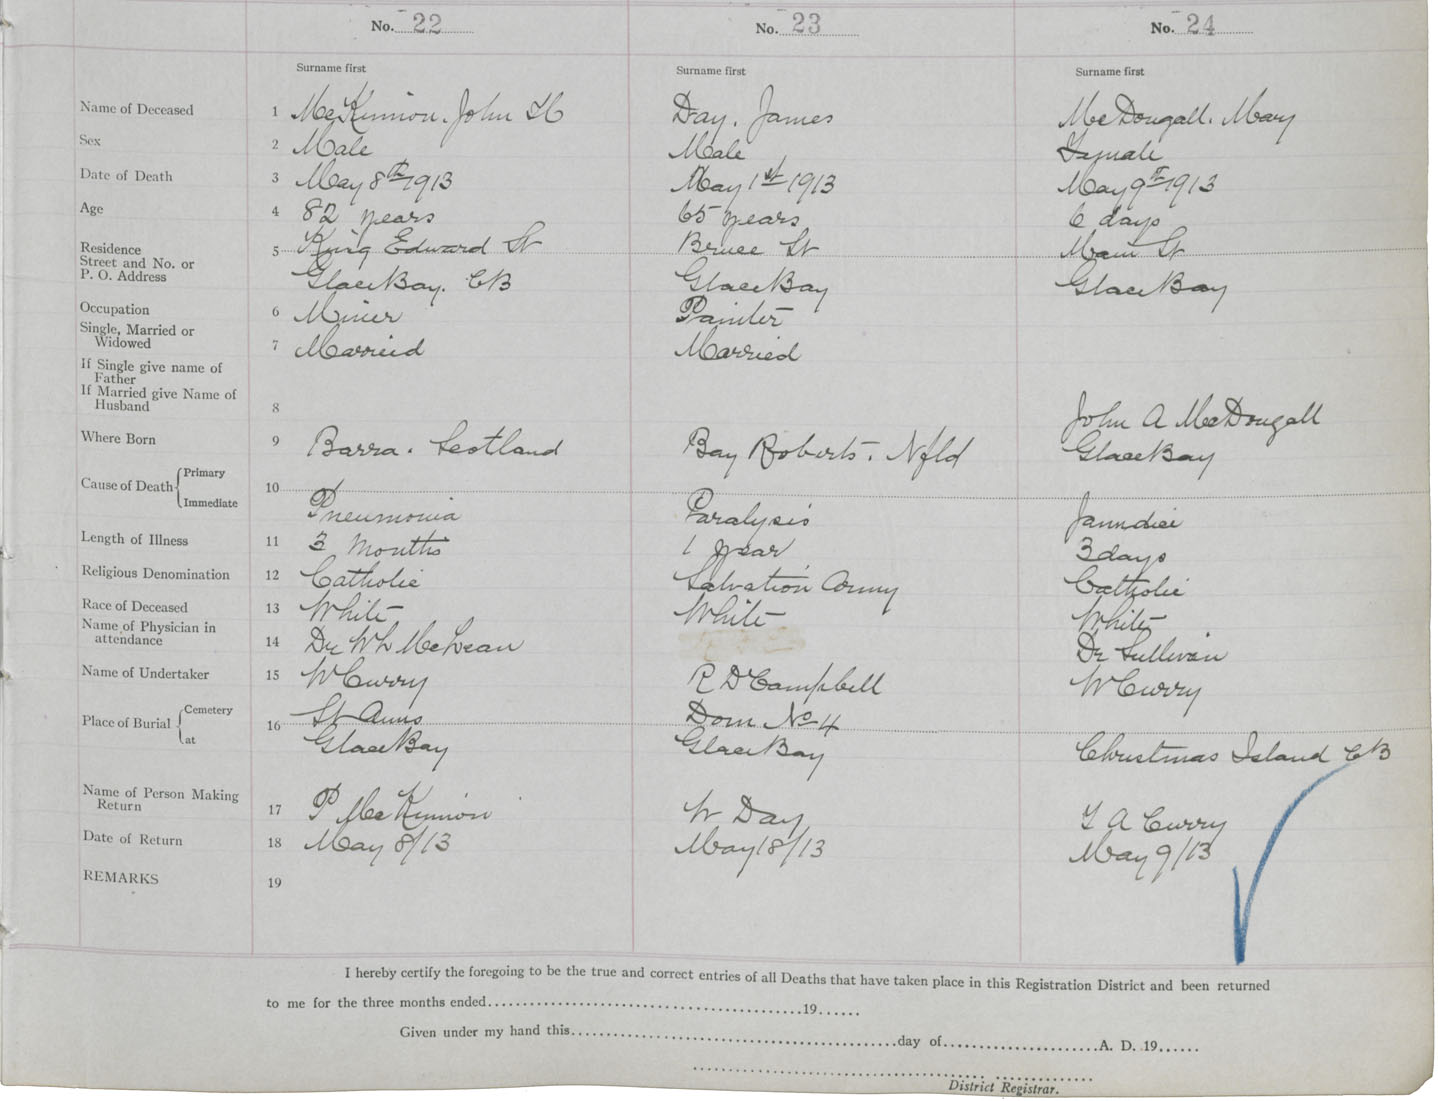 No. 22 No. 23 No. 24
Surname first Surname first Surname first
Name of Deceased 1 McKinnon. John H Day. James McDougall. Mary
Sex 2 Male Male Female
Date of Death 3 May 8th 1913 May 1st 1913 May 9th 1913
Age 4 82 years 65 years 6 days
Residence 5 King Edward St Bruce St Main St
Street and No. or
P. O. Address Glace Bay. CB Glace Bay Glace Bay
Occupation 6 Miner Painter
Single, Married or
Widowed 7 Married Married
If Single give name of
Father
If Married give Name of
Husband 8 John A McDougall
Where Born 9 Barra. Scotland Bay Roberts. Nfld Glace Bay
Cause of Death Primary 10
Immediate Pneumonia Paralysis Jaundice
Length of Illness 11 3 Months 1 year 3 days
Religious Denomination 12 Catholic Salvation Army Catholic
Race of Deceased 13 White White White
Name of Physician in
attendance 14 Dr Wh McLean Dr Sullivan
Name of Undertaker 15 W Curry R D Campbell W Curry
Place of Burial Cemetery 16 St Anns Dom No 4
at Glace Bay Glace Bay Christmas Island CB
Name of Person Making
Return 17 P McKinnon W Day F A Curry
Date of Return 18 May 8/13 May 18/13 May 9/13
REMARKS 19
I hereby certify the foregoing to be the true and correct entries of all Deaths that have taken place in this Registration District and been returned
to me for the three months ended 19
Given under my hand this day of A. D. 19
District Registrar.